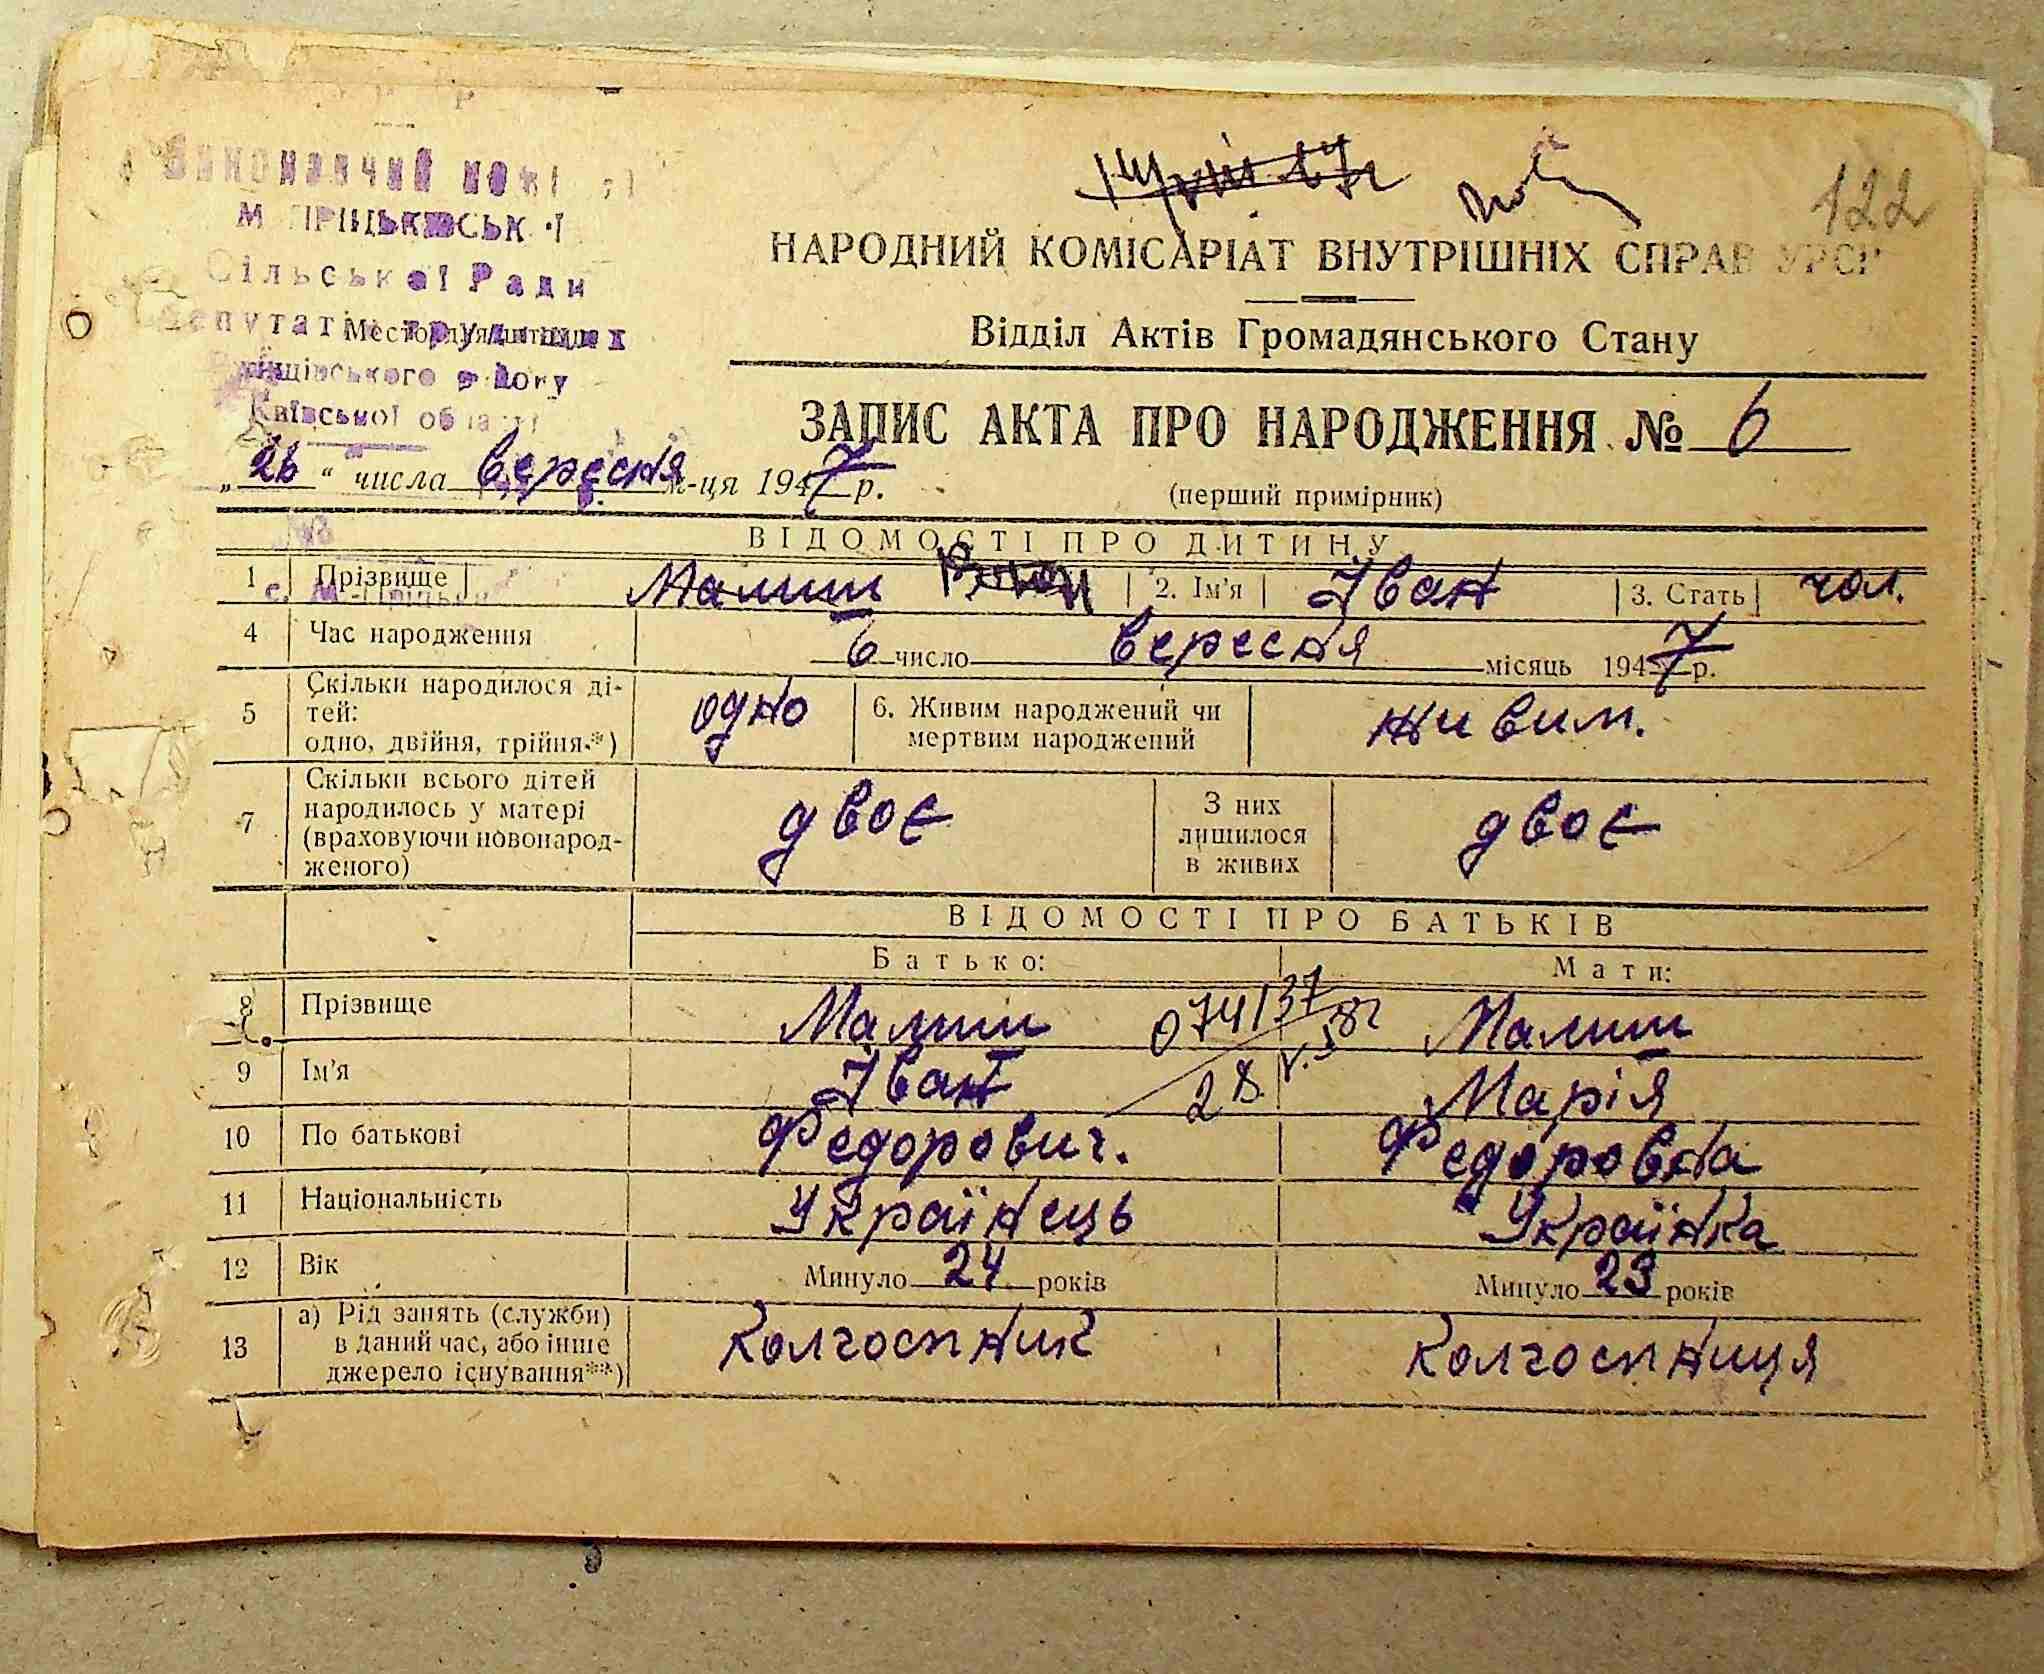 122
Виконавчий
М ПРІЦЬКІВСЬК
Сільської Ради
трудящих
району
Київської
НАРОДНИЙ КОМІСАРІАТ ВНУТРІШНІХ СПРАВ УРСР
Відділ Актів Громадянського Стану
ЗАПИС АКТА ПРО НАРОДЖЕННЯ № 6
(перший примірник)
„26“ числа вересня м-ця 1947 р.
ВІДОМОСТІ ПРО ДИТИНУ
1 Прізвище Малиш 2. Ім'я Іван 3. Стать чол.
4 Час народження 6 число вересня місяць 1947 р.
5 Скільки народилося ді-
тей:
одно, двійня, трійня*) одно
6. Живим народжений чи
мертвим народжений живим.
7 Скільки всього дітей
народилось у матері
(враховуючи новонарод-
женого) двоє
З них
лишилося
в живих двоє
ВІДОМОСТІ ПРО БАТЬКІВ
Батько: Мати:
8 Прізвище Малиш Малиш
9 Ім'я Іван Марія
10 По батькові Федорович. Федоровна
11 Національність Українець Українка
12 Вік Минуло 24 років Минуло 23 років
13 а) Рід занять (служби)
в даний час, або інше
джерело існування**) Колгоспник Колгоспниця